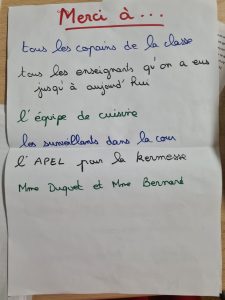 Merci à...
tous les copains de la classe
tous les enseignants qu'on a eus
jusqu'à aujourd'hui
l'équipe de cuisine
les surveillants dans la cour
l'APEL pour la kermesse
Mme Duquet et Mme Bernard